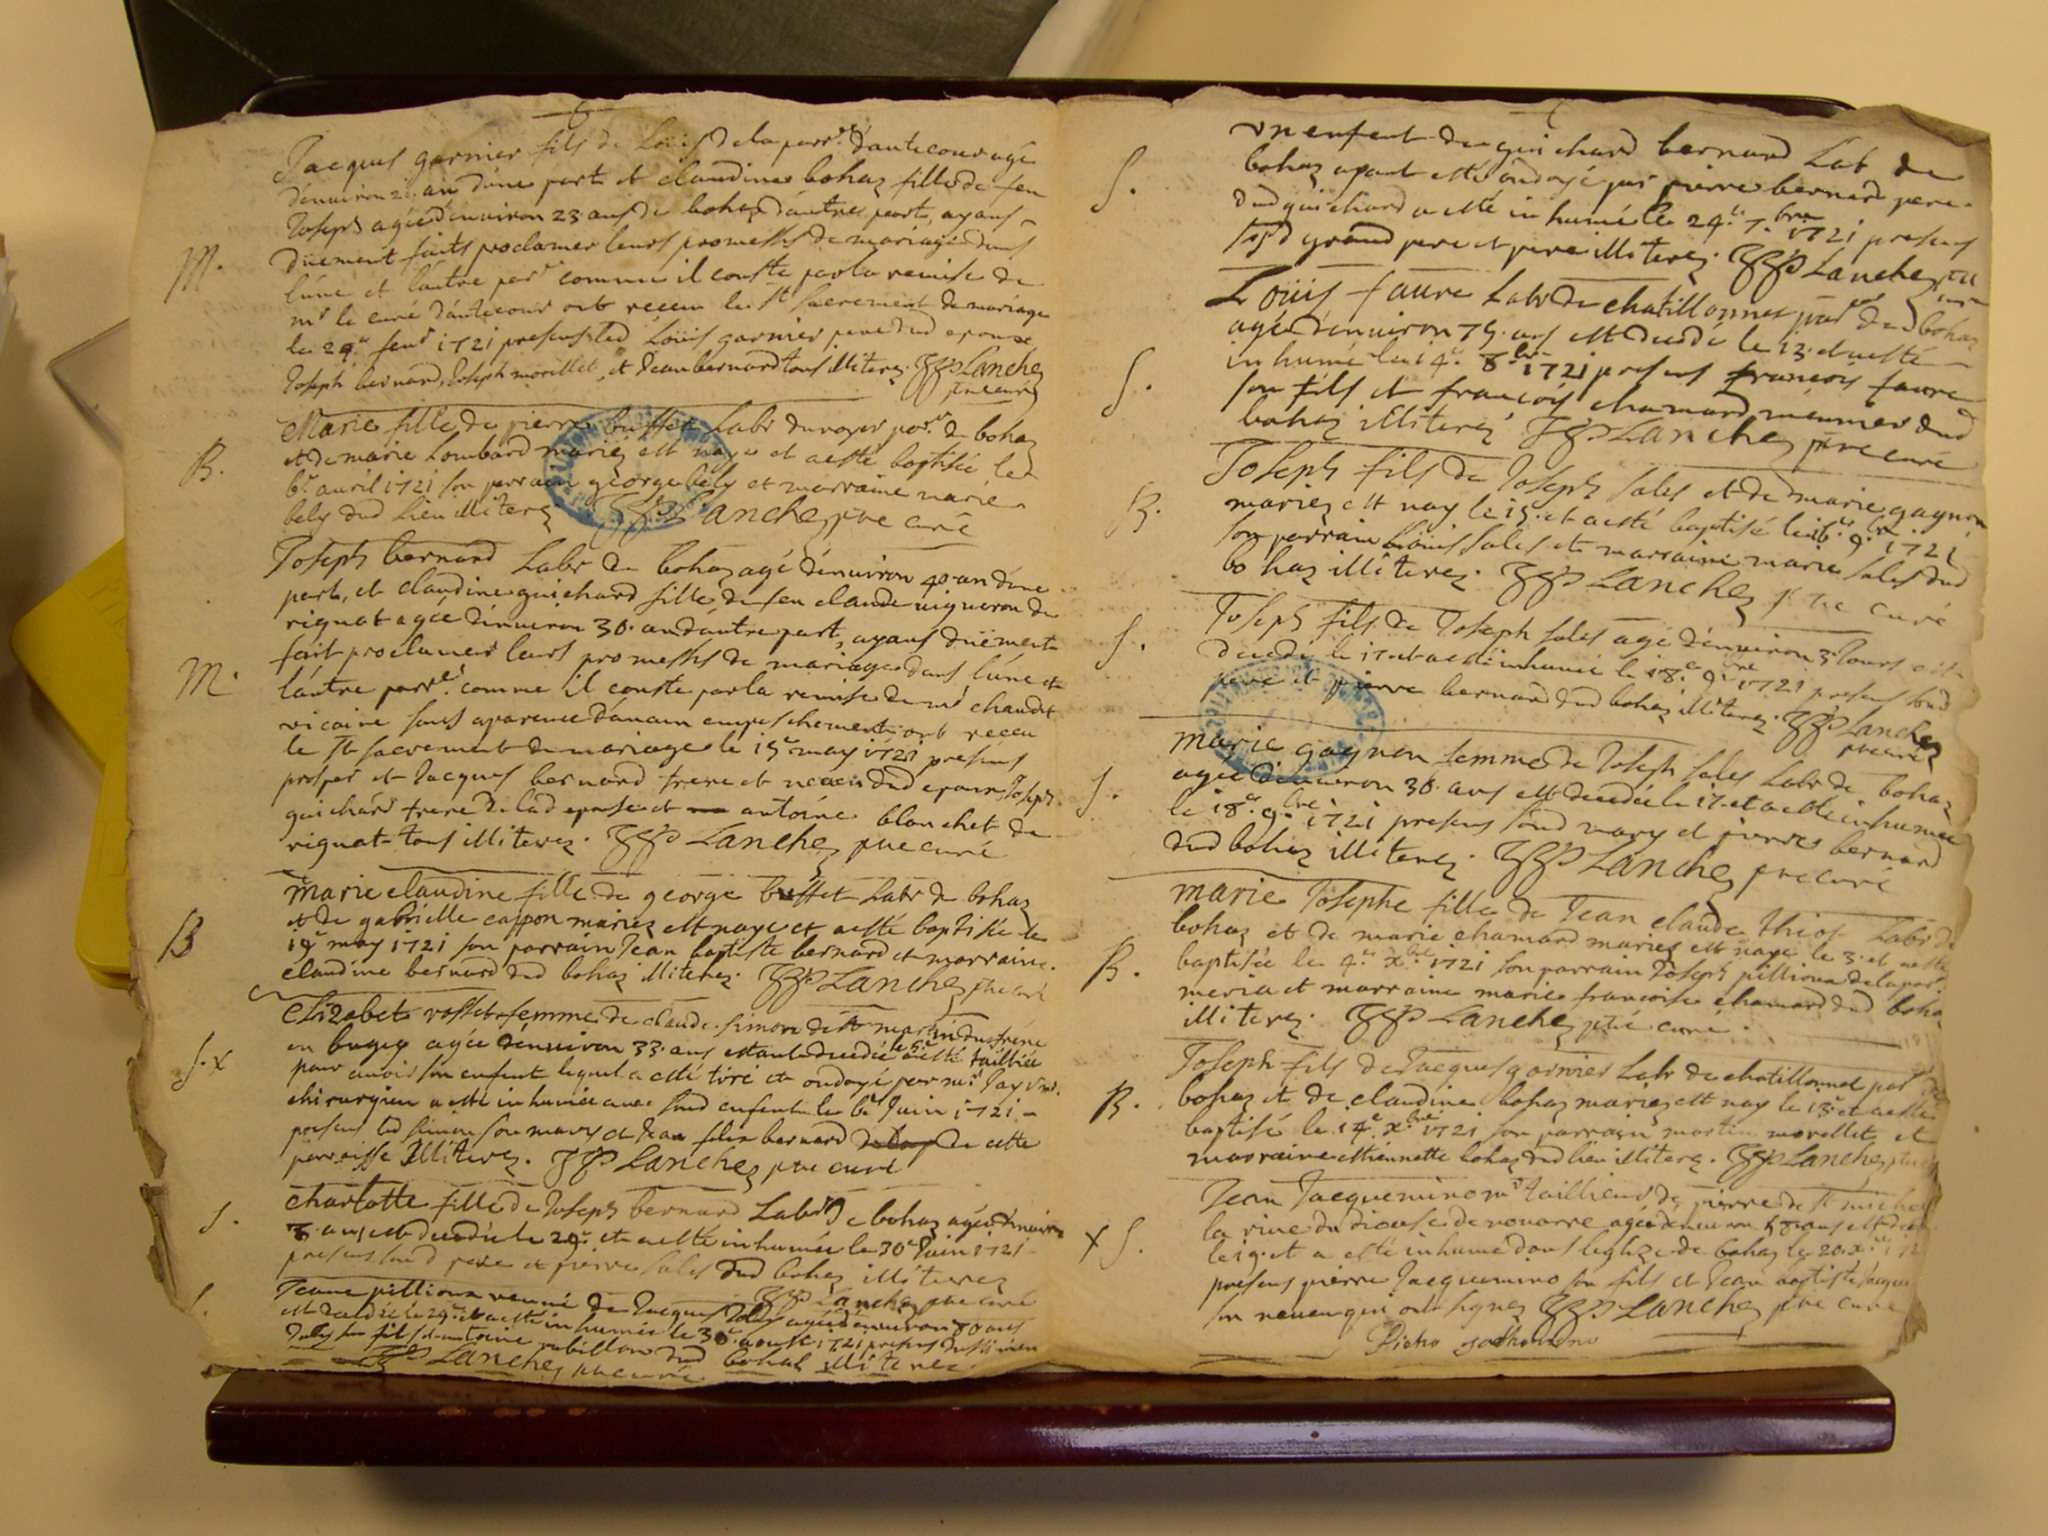 Jacques garnier fils de Loüis de la parr. d'antecour agé
d'enuiron an d'une part et claudine bohaz fille de feu
Joseph agée d'enuiron 23 ans de bohaz d'autre part, ayans
M. düement faits proclamer leurs promesses de mariage dans
l'une et l'autre parr. comme il conste par la remise de
mr le curé d'antecour ont receu le st sacrement de mariage
le feur 1721 presens led Loüis garnier pere dud epoux
Joseph bernard, Joseph morillet et Jean bernard tous illiterez. Lanchez
ptre curé
Marie fille de pierre buffet Labr du noyer par. de bohaz
B. et de marie Lombard mariez est naye et a esté baptisée le
6e auril 1721 son parrain george bely et marraine marie
bely dud lieu illiterez Lanchez ptre curé
Joseph bernard Labr de bohaz agé d'enuiron 40 an d'une
part, et claudine guichard fille de feu claude uigneron de
rignat agée d'enuiron 30 an d'autre part, ayans düement
fait proclamer leurs promesses de mariage dans l'une et
M. l'autre parr. comme il conste par la remise de mr chaudet
vicaire sans aparence d'aucun empeschement ont receu
le st sacrement de mariage le 15e may 1721 presens
prospar et Jacques bernard frere et neueu dud epoux Joseph
guichard frere de lad epouse et antoine blanchet de
rignat tous illiterez. Lanchez ptre curé
Marie claudine fille de george buffet Labr de bohaz
B et de gabrielle mariez est naye et a esté baptisée le
19e may 1721 son parrain Jean baptiste bernard et marraine
claudine bernard dud bohaz illiterez. Lanchez ptre curé
Elizabet rosset femme de claude simon de st martin du frene
en bugey agée d'enuiron 33 ans estant decedée le 5e a esté tailliée
S. x pour auoir son enfant lequel a esté tiré et ondoyé par mr
chirurgien a esté inhumée auec sond enfant le 6e Juin 1721
presens led simon son mary et Jean bernard de cette
parroisse Illiterez. Lanchez ptre curé
S. charlotte fille de Joseph bernard Labr de bohaz agée d'enuiron
ans est decedée le 29e et a esté inhumée le 30e Juin 1721
presens sond pere et pierre sales dud bohaz illiterez
Lanchez ptre curé
S. Jeanne pillioux veuue de Jacques agée d'enuiron 80 ans
est decedée le 29e et a esté inhumée le 30e aoust 1721 presens
son fils et antoine robillon dud bohaz illiterez.
Lanchez ptre curé
vn enfent de guichard bernard Lab de
S. bohaz ayant esté ondoyé par pierre bernard pere
dud guichard a esté inhumé le 24e 7.bre 1721 presens
grand pere et pere illiterez. Lanchez ptre
curé
Loüis faure Labr de chatillonnet par. dud bohaz
agé d'enuiron 75 ans est decedé le 13 et a esté
S. inhumé le 14e 8.bre 1721 presens francois faure
son fils et francois chamard meunier dud
bohaz illiterez Lanchez ptre curé
Joseph fils de Joseph sales et de marie gagnon
B. mariez est nay le 15 et a esté baptisé le 16e 9.bre 1721
son parrain Loüis sales et marraine marie sales dud
bohaz illiterez. Lanchez ptre curé
S. Joseph fils de Joseph sales agé d'enuiron 3 Jours est
decedé le 17 et a esté inhumé le 18e 9.bre 1721 presens sond
pere et pierre bernard dud bohaz illiterez. Lanchez
ptre curé
marie gagnon femme de Joseph sales Labr de bohaz
S. agée d'enuiron 30 ans est decedée le 17 et a esté inhumée
le 18e 9.bre 1721 presens sond mary et pierre bernard
dud bohaz illiterez. Lanchez ptre curé
marie Josephe fille de Jean claude Labr de
bohaz et de marie chamard mariez est naye le 3 et a esté
B. baptisée le 4e x.bre 1721 son parrain Joseph pillioux de la par
meria et marraine marie francoise chamard dud bohaz
illiterez. Lanchez ptre curé.
Joseph fils de Jacques garnier Labr de chatillonnet par de
B. bohaz et de claudine bohaz mariez est nay le 13e et a esté
baptisé le 14e x.bre 1721 son parrain martin morellet et
marraine estiennette bohaz dud lieu illiterez. Lanchez ptre curé
Jean Jacquemino mr tailleur de pierre de st michel
la riue du diocese de nouarre agé d'enuiron ans est decedé
x S. le 19 et a esté inhumé dans leglize de bohaz le 20 x.bre
presens pierre Jacquemino son fils et Jean baptiste Jacque
son neueu qui ont signez Lanchez ptre curé
Pietro